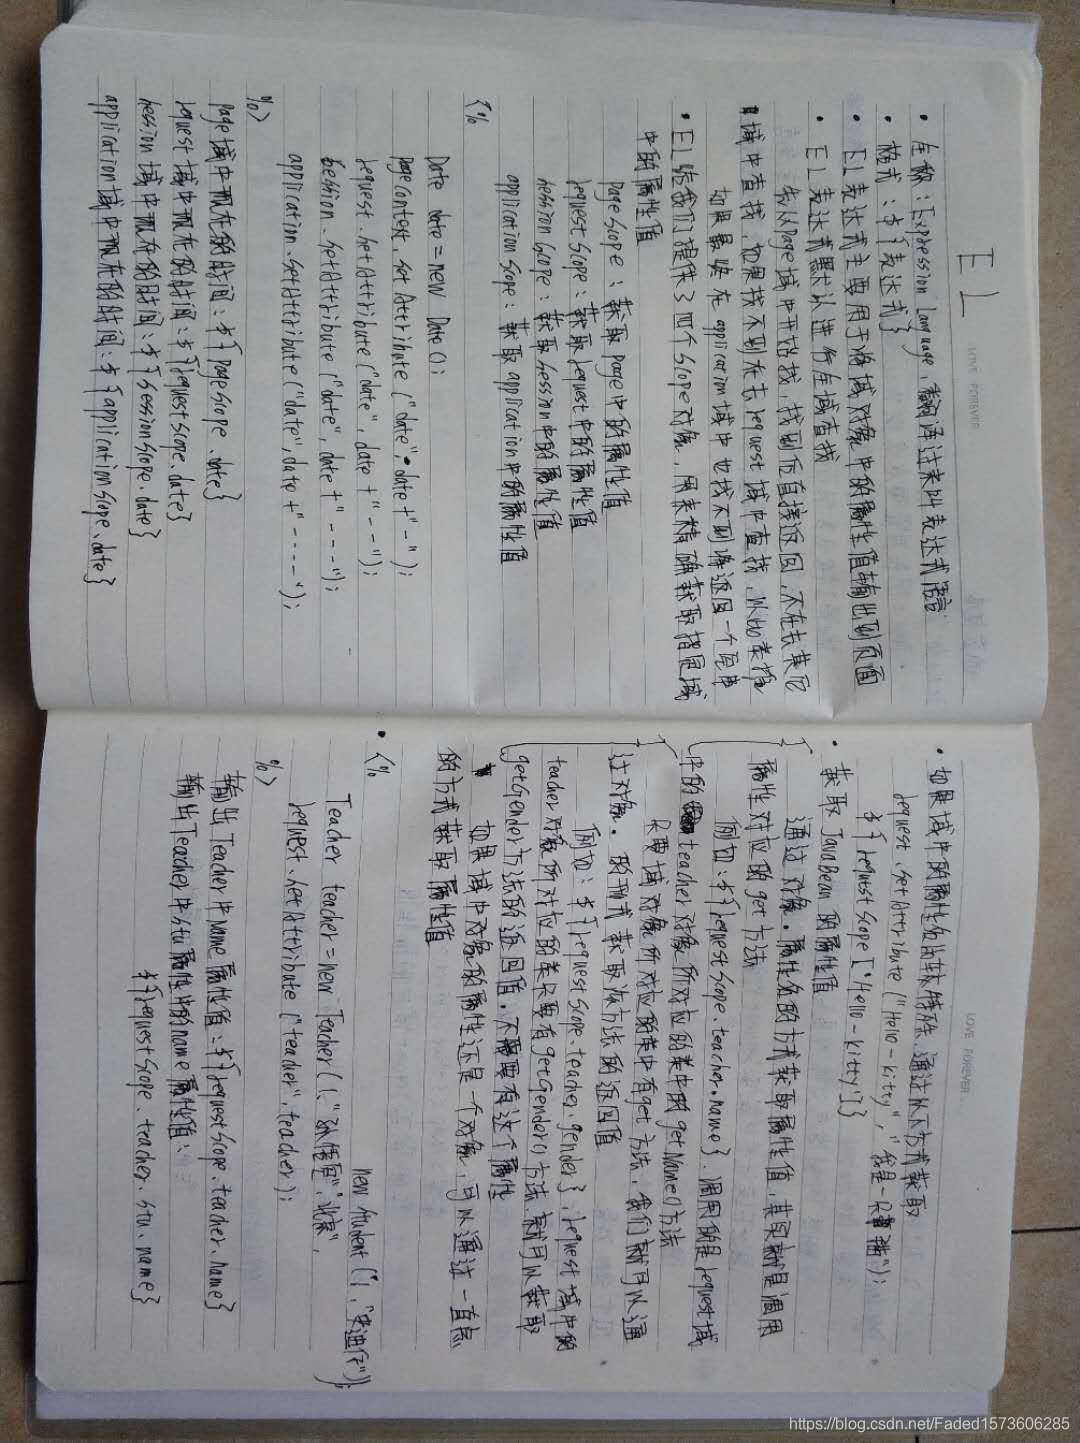 EL
LOVE FOREVER
• 全称：Expression Language，翻译过来叫表达式语言
• 格式：${表达式}
• EL表达式主要用于将域对象中的属性值输出到页面
• EL表达式默认进行全域查找
先从Page域中开始找，找到后直接返回，不在去其它
域中查找，如果找不到在去request域中查找，以此类推
如果最终在application域中也找不到将返回一个空串
• EL给我们提供了四个Scope对象，用来精确获取指定域
中的属性值
pageScope：获取page中的属性值
requestScope：获取request中的属性值
sessionScope：获取session中的属性值
applicationScope：获取application中的属性值
<%
Date date = new Date();
pageContext.setAttribute("date", date+"-");
request.setAttribute("date", date+"--");
session.setAttribute("date", date+"---");
application.setAttribute("date", date+"----");
%>
page域中现在的时间：${pageScope.date}
request域中现在的时间：${requestScope.date}
session域中现在的时间：${sessionScope.date}
application域中现在的时间：${applicationScope.date}
LOVE FOREVER
• 如果域中的属性名比较特殊，通过以下方式获取
request.setAttribute("Hello-kitty", "我是一只猫");
${requestScope["Hello-kitty"]}
• 获取JavaBean的属性值
通过对象.属性名的方式获取属性值，其实就是调用
属性对应的get方法
例如：${requestScope.teacher.name}，调用的是request域
中的teacher对象所对应的类中的getName()方法
只要域对象所对应的类中有get方法，我们就可以通
过对象.的形式获取该方法的返回值
例如：${requestScope.teacher.gender}，request域中的
teacher对象所对应的类只要有getGender()方法，就可以获取
getGender方法的返回值，不需要有这个属性
如果域中对象的属性还是一个对象，可以通过一直点
的方式获取属性值
• <%
Teacher teacher = new Teacher(1, "孙悟空", "北京",
new Student(1, "宋迪仔"));
request.setAttribute("teacher", teacher);
%>
输出Teacher中name属性值：${requestScope.teacher.name}
输出Teacher中stu属性中的name属性值：
${requestScope.teacher.stu.name}
https://blog.csdn.net/Faded1573606285